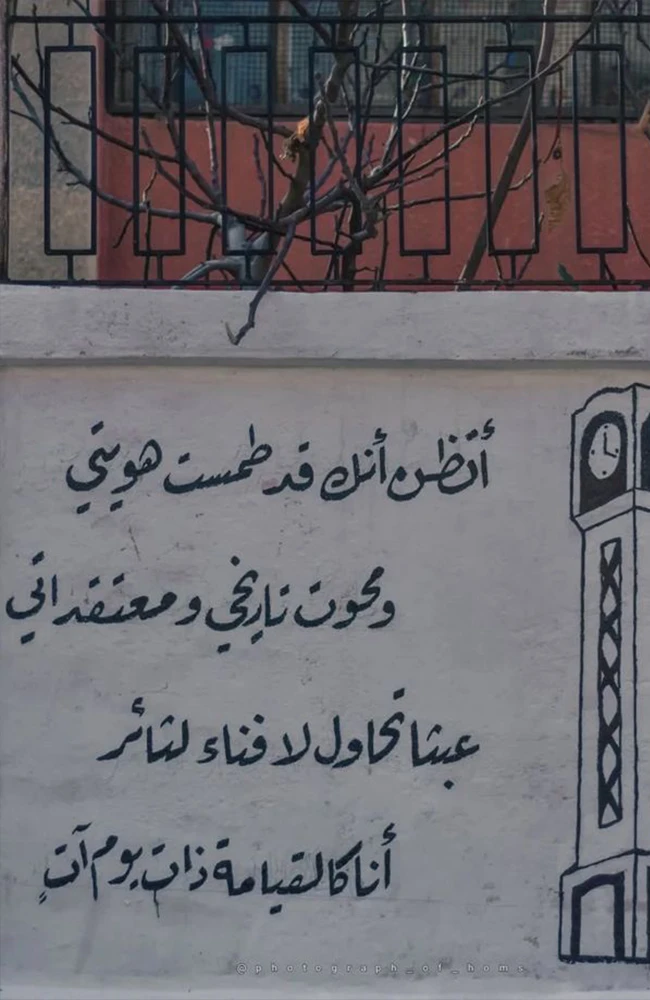 أتظن أنك قد طمست هويتي
ومحوت تاريخي ومعتقداتي
عبثا تحاول لا فناء لثائر
أنا كالقيامة ذات يوم آتٍ
@photograph_of_homs